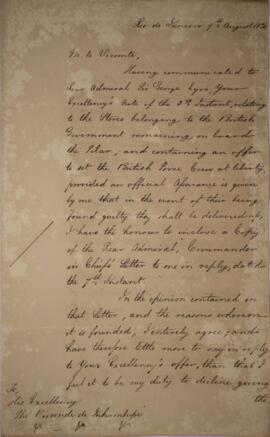 Rio de Janeiro 9th August 182
Sr. le Vicomte,
Having communicated to
Rear Admiral Sir George Eyre, Your
Excellency's Note of the 3d Instant, relating
to the Stores belonging to the British
Government remaining on board
the and containing an offer
to set the British Prize Crew at liberty,
provided an official Assurance is given
by me that in the event of their being
found guilty they shall be delivered up,
I have the honour to inclose a Copy
of the Rear Admiral, Commander
in Chief's Letter to me in reply, dated
the 7th Instant.
In the opinion contained in
that Letter, and the reasons whereon
it is founded, I entirely agree; and
have therefore little more to say in reply
to Your Excellency's offer, than that I
feel it to be my duty to decline giving
the
To,
His Excellency
The Viconde de